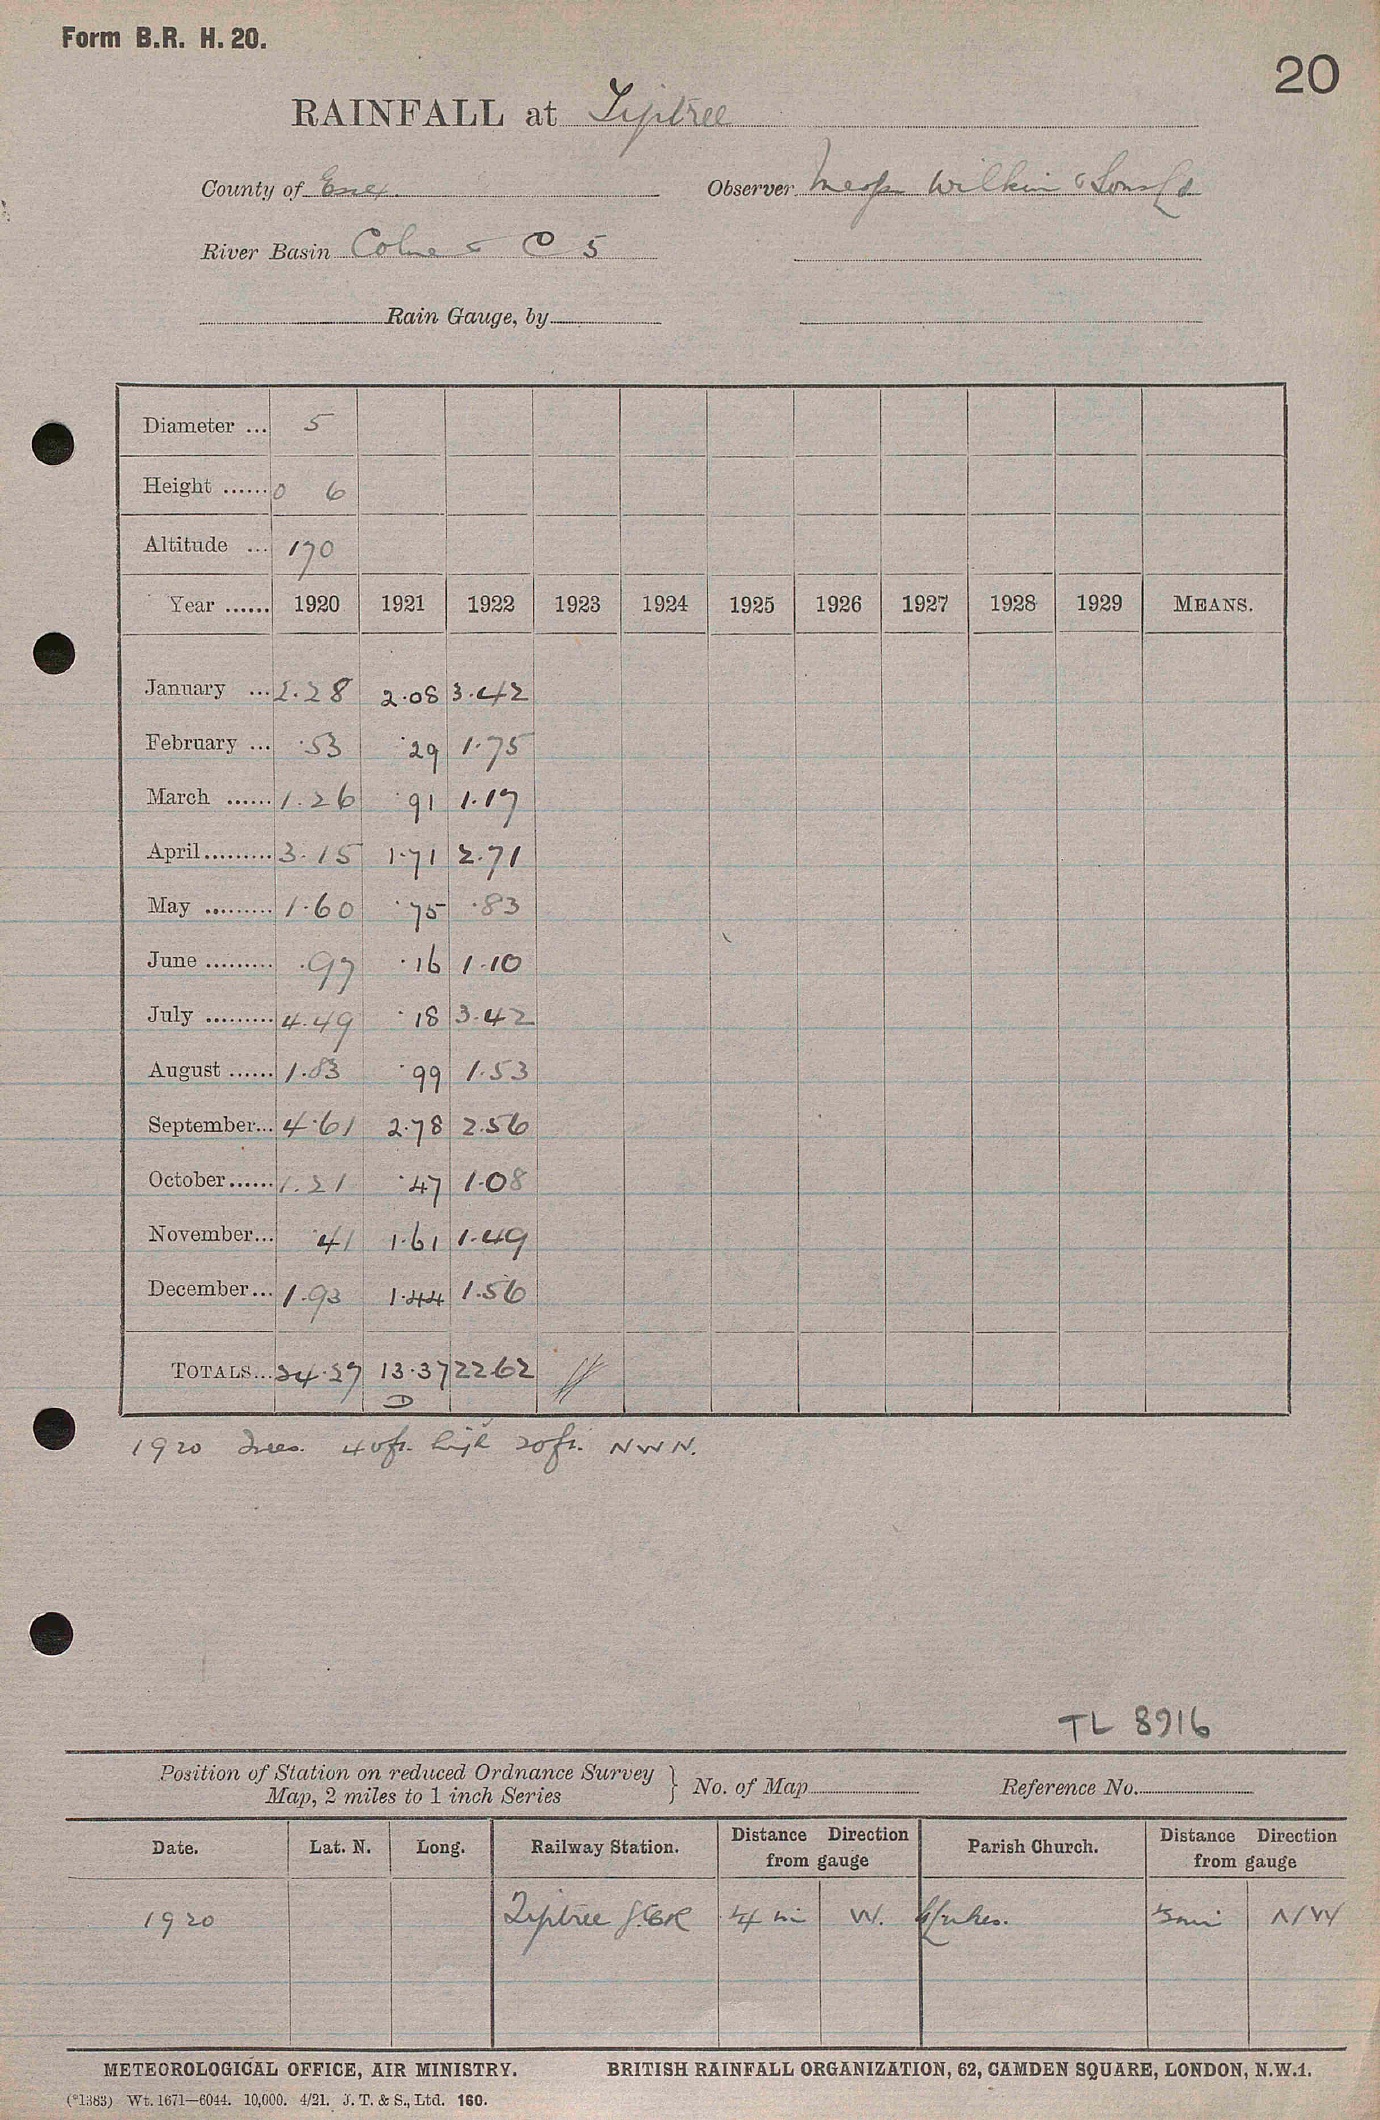 Form B.R. H. 20.
20
RAINFALL at Tiptree
County of Essex. Observer. Messrs Wilkin & Sons Ld
River Basin Colne & C 5
Rain Gauge, by
Diameter ... 5
Height ...... 0 6
Altitude ... 170
Year ...... 1920 1921 1922 1923 1924 1925 1926 1927 1928 1929 MEANS.
January ... 2.28 2.08 3.42
February ... .53 .29 1.75
March ...... 1.26 .91 1.17
April ......... 3.15 1.71 2.71
May ......... 1.60 .75 .83
June ......... .97 .16 1.10
July ......... 4.49 .18 3.42
August ...... 1.83 .99 1.53
September... 4.61 2.78 2.56
October ...... 1.21 .47 1.08
November... .41 1.61 1.49
December... 1.93 1.44 1.56
TOTALS... 24.27 13.37 22.62
D
1920 Trees. 40ft. high 20ft. NWN.
TL 8916
Position of Station on reduced Ordnance Survey Map, 2 miles to 1 inch Series } No. of Map Reference No.
Date. Lat. N. Long. Railway Station. Distance Direction from gauge Parish Church. Distance Direction from gauge
1920 Tiptree G.E.R ¼ mi W. St Lukes. mi NW
METEOROLOGICAL OFFICE, AIR MINISTRY. BRITISH RAINFALL ORGANIZATION, 62, CAMDEN SQUARE, LONDON, N.W.1.
(*1383) Wt. 1671—6044. 10,000. 4/21. J. T. & S., Ltd. 160.